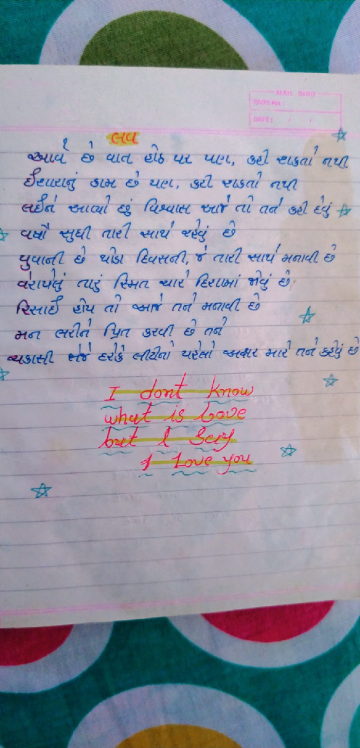 લવ
આવે છે વાત હોઠ પર પણ, કહી શકતો નથી
ઈશારાનું કામ છે પણ, કરી શકતો નથી
લઈને આવ્યો છું વિશ્વાસ આજે તો તને કહી દેવું
વર્ષો સુધી તારી સાથે રહેવું છે
યુવાની છે થોડા દિવસની, જે તારી સાથે મનાવી છે
વેરાયેલું તારું સ્મિત મારે હિરામાં જોવું છે.
રિસાઈ હોય તો આજે તને મનાવી છે
મન ભરીને પ્રિત કરવી છે તને
દરેક લીટીનો પહેલો અક્ષર મારે તને કહેવું છે
I dont know
what is Love
but I Say
I Love you